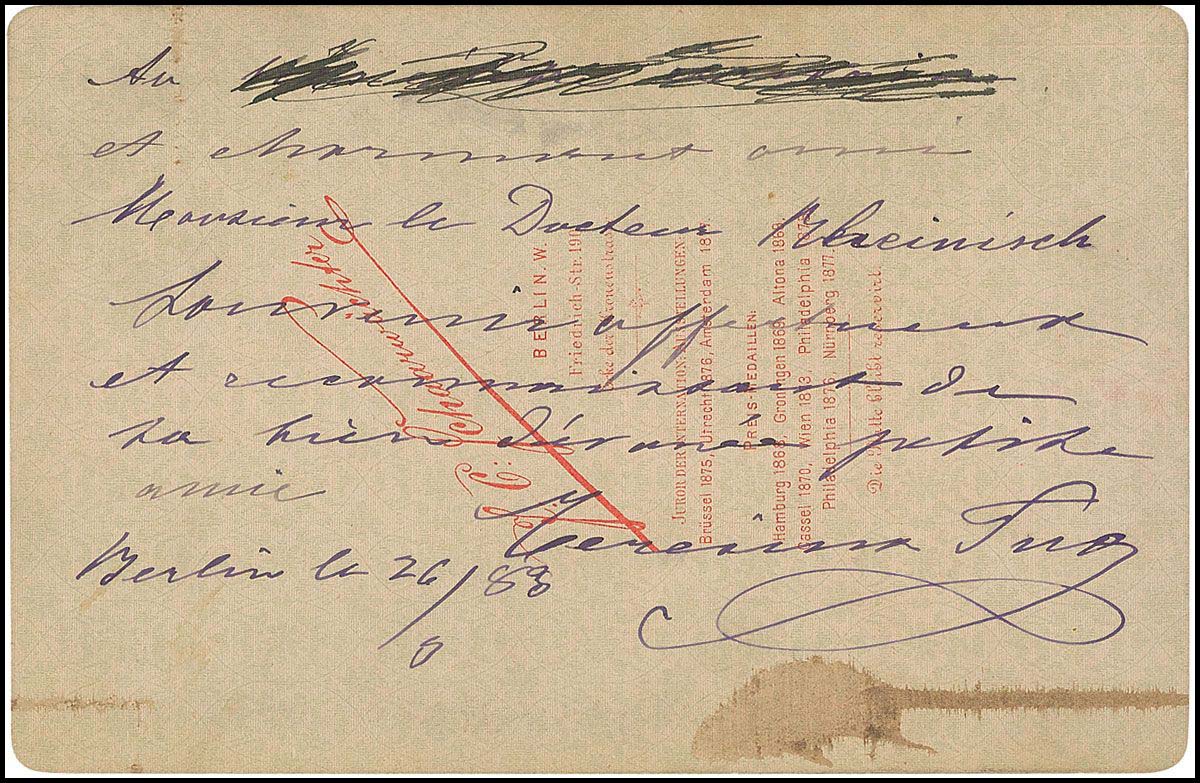 Au
et charmant ami
Monsieur le Docteur Rheinisch
Souvenir affectueux
et reconnaissant de
sa bien dévouée petite
amie
Teresina Tua
Berlin le 26/ 83
J. C. Schaarwächter
BERLIN. W.
Friedrich-Str. 190
Ecke der Kronenstrasse
JUROR DER INTERNATION. AUSSTELLUNGEN:
Brüssel 1875, Utrecht 1876, Amsterdam 18
PREIS-MEDAILLEN:
Hamburg 1868, Groningen 1869, Altona 1869,
Cassel 1870, Wien 1873, Philadelphia 1876
Philadelphia 1876, Nürnberg 1877.
Die Platte bleibt reservirt.